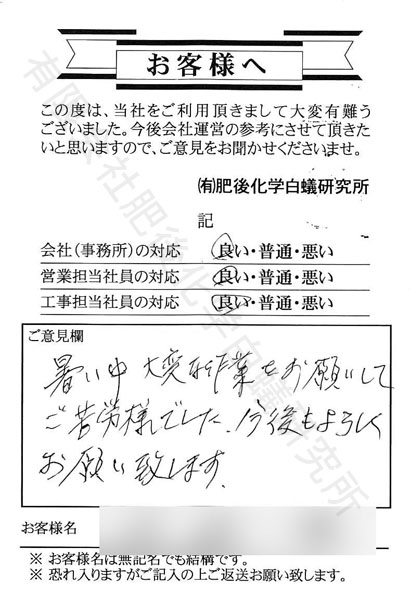 お客様へ
この度は、当社をご利用頂きまして大変有難う
ございました。今後会社運営の参考にさせて頂きた
いと思いますので、ご意見をお聞かせくださいませ。
㈲肥後化学白蟻研究所
記
会社（事務所）の対応 良い・普通・悪い
営業担当社員の対応 良い・普通・悪い
工事担当社員の対応 良い・普通・悪い
ご意見欄
暑い中 大変な作業をお願いして
ご苦労様でした、今後もよろしく
お願い致します。
お客様名
※ お客様名は無記名でも結構です。
※ 恐れ入りますがご記入の上ご返送お願い致します。
有限会社肥後化学白蟻研究所